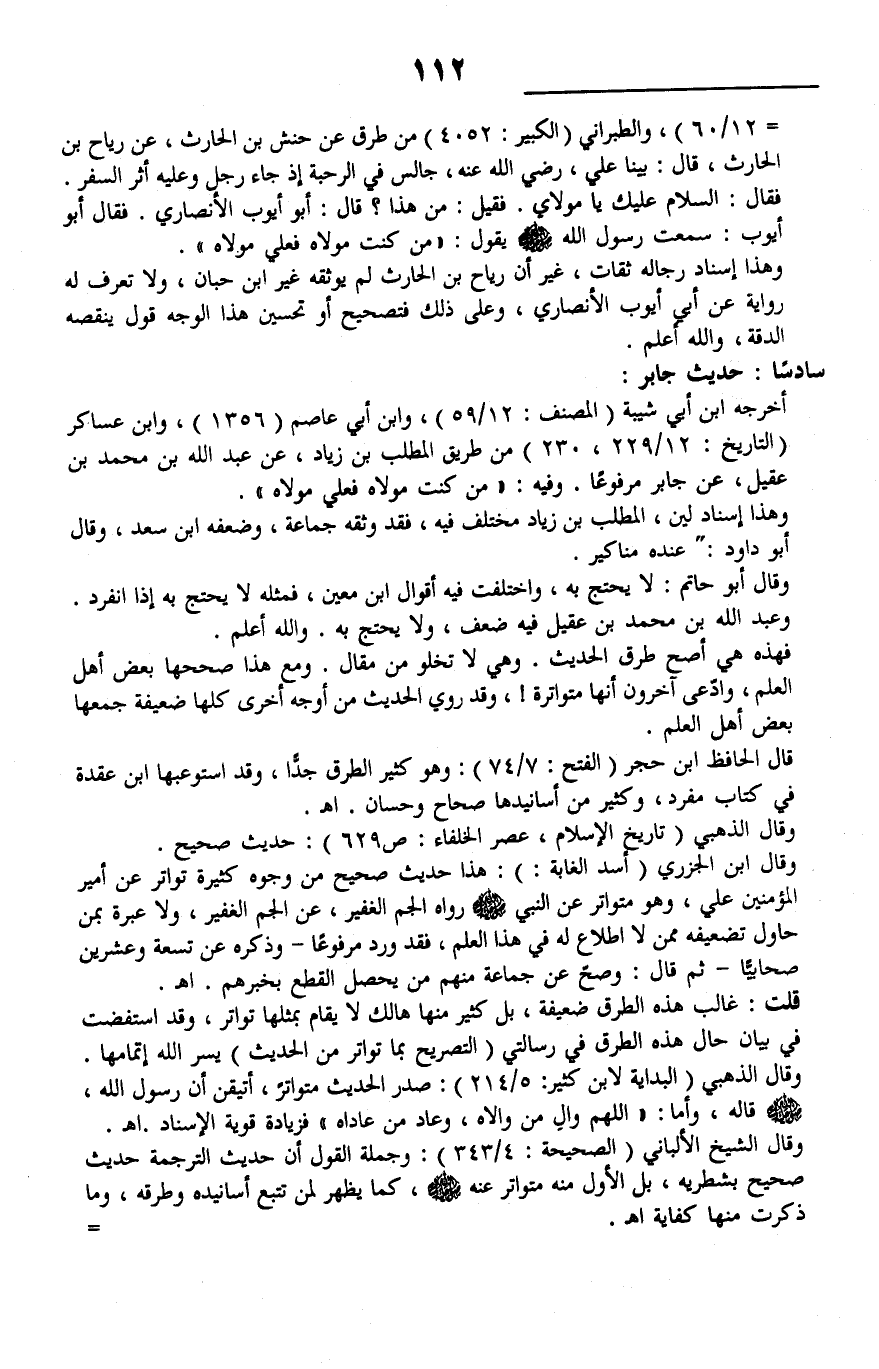 ١١٢
= ٦٠/١٢ ) ، والطبراني ( الكبير : ٤٠٥٢ ) من طرق عن حنش بن الحارث ، عن رياح بن
الحارث ، قال : بينا علي ، رضي الله عنه ، جالس في الرحبة إذ جاء رجل وعليه أثر السفر .
فقال : السلام عليك يا مولاي . فقيل : من هذا ؟ قال : أبو أيوب الأنصاري . فقال أبو
أيوب : سمعت رسول الله ﷺ يقول : « من كنت مولاه فعلي مولاه » .
وهذا إسناد رجاله ثقات ، غير أن رياح بن الحارث لم يوثقه غير ابن حبان ، ولا تعرف له
رواية عن أبي أيوب الأنصاري ، وعلى ذلك فتصحيح أو تحسين هذا الوجه قول ينقصه
الدقة ، والله أعلم .
سادسًا : حديث جابر :
أخرجه ابن أبي شيبة ( المصنف : ٥٩/١٢ ) ، وابن أبي عاصم ( ١٣٥٦ ) ، وابن عساكر
( التاريخ : ٢٢٩/١٢ ، ٢٣٠ ) من طريق المطلب بن زياد ، عن عبد الله بن محمد بن
عقيل ، عن جابر مرفوعًا . وفيه : « من كنت مولاه فعلي مولاه » .
وهذا إسناد لين ، المطلب بن زياد مختلف فيه ، فقد وثقه جماعة ، وضعفه ابن سعد ، وقال
أبو داود :" عنده مناكير .
وقال أبو حاتم : لا يحتج به ، واختلفت فيه أقوال ابن معين ، فمثله لا يحتج به إذا انفرد .
وعبد الله بن محمد بن عقيل فيه ضعف ، ولا يحتج به . والله أعلم .
فهذه هي أصح طرق الحديث . وهي لا تخلو من مقال . ومع هذا صححها بعض أهل
العلم ، وادّعى آخرون أنها متواترة ! ، وقد روي الحديث من أوجه أخرى كلها ضعيفة جمعها
بعض أهل العلم .
قال الحافظ ابن حجر ( الفتح : ٧٤/٧ ) : وهو كثير الطرق جدًّا ، وقد استوعبها ابن عقدة
في كتاب مفرد ، وكثير من أسانيدها صحاح وحسان . اهـ .
وقال الذهبي ( تاريخ الإسلام ، عصر الخلفاء : ص٦٢٩ ) : حديث صحيح .
وقال ابن الجزري ( أسد الغابة : ) : هذا حديث صحيح من وجوه كثيرة تواتر عن أمير
المؤمنين علي ، وهو متواتر عن النبي ﷺ رواه الجم الغفير ، عن الجم الغفير ، ولا عبرة بمن
حاول تضعيفه ممن لا اطلاع له في هذا العلم ، فقد ورد مرفوعًا – وذكره عن تسعة وعشرين
صحابيًّا – ثم قال : وصحّ عن جماعة منهم من يحصل القطع بخبرهم . اهـ .
قلت : غالب هذه الطرق ضعيفة ، بل كثير منها هالك لا يقام بمثلها تواتر ، وقد استفضت
في بيان حال هذه الطرق في رسالتي ( التصريح بما تواتر من الحديث ) يسر الله إتمامها .
وقال الذهبي ( البداية لابن كثير: ٢١٤/٥ ) : صدر الحديث متواترٌ ، أتيقن أن رسول الله ،
ﷺ قاله ، وأما : « اللهم والِ من والاه ، وعاد من عاداه » فزيادة قوية الإسناد .اهـ .
وقال الشيخ الألباني ( الصحيحة : ٣٤٣/٤ ) : وجملة القول أن حديث الترجمة حديث
صحيح بشطريه ، بل الأول منه متواتر عنه ﷺ ، كما يظهر لمن تتبع أسانيده وطرقه ، وما
ذكرت منها كفاية اهـ .
=